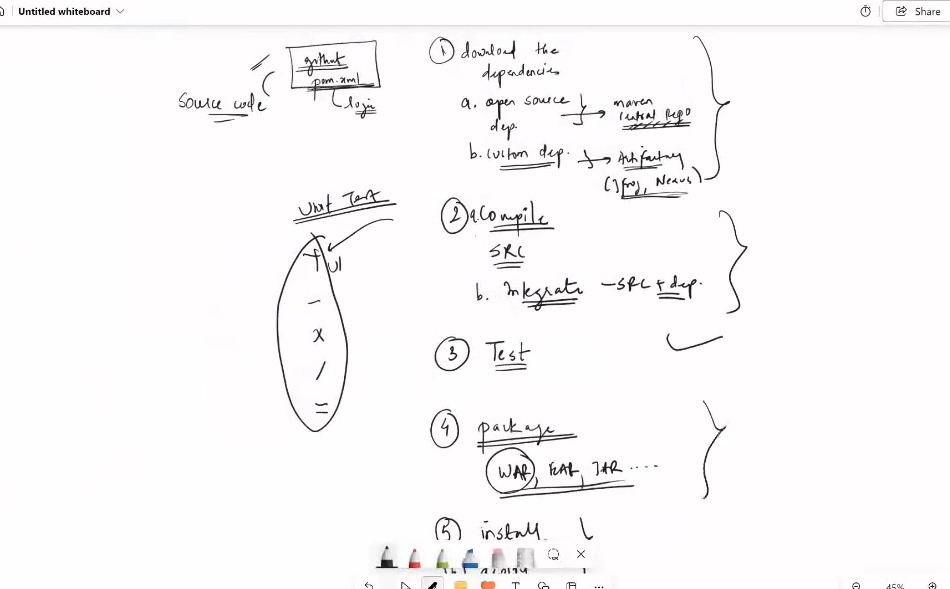 Untitled whiteboard
Share
github
pom.xml
Source code
login
① download the
dependencies
a. open source
dep.
maven
central Repo
b. custom dep.
Artifactory
(Jfrog, Nexus)
Unit Test
+ UI
-
x
/
=
② a. Compile
SRC
b. Integrate - SRC + dep.
③ Test
④ package
WAR, EAR, JAR ....
⑤ install
T
45%